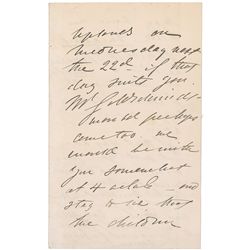 upland on
Wednesday next
the 22d if that
day suits you
Mr Goldschmidt
would perhaps
come too. We
would be with
you somewhat
at 4 oclock - and
stay to see that
the children